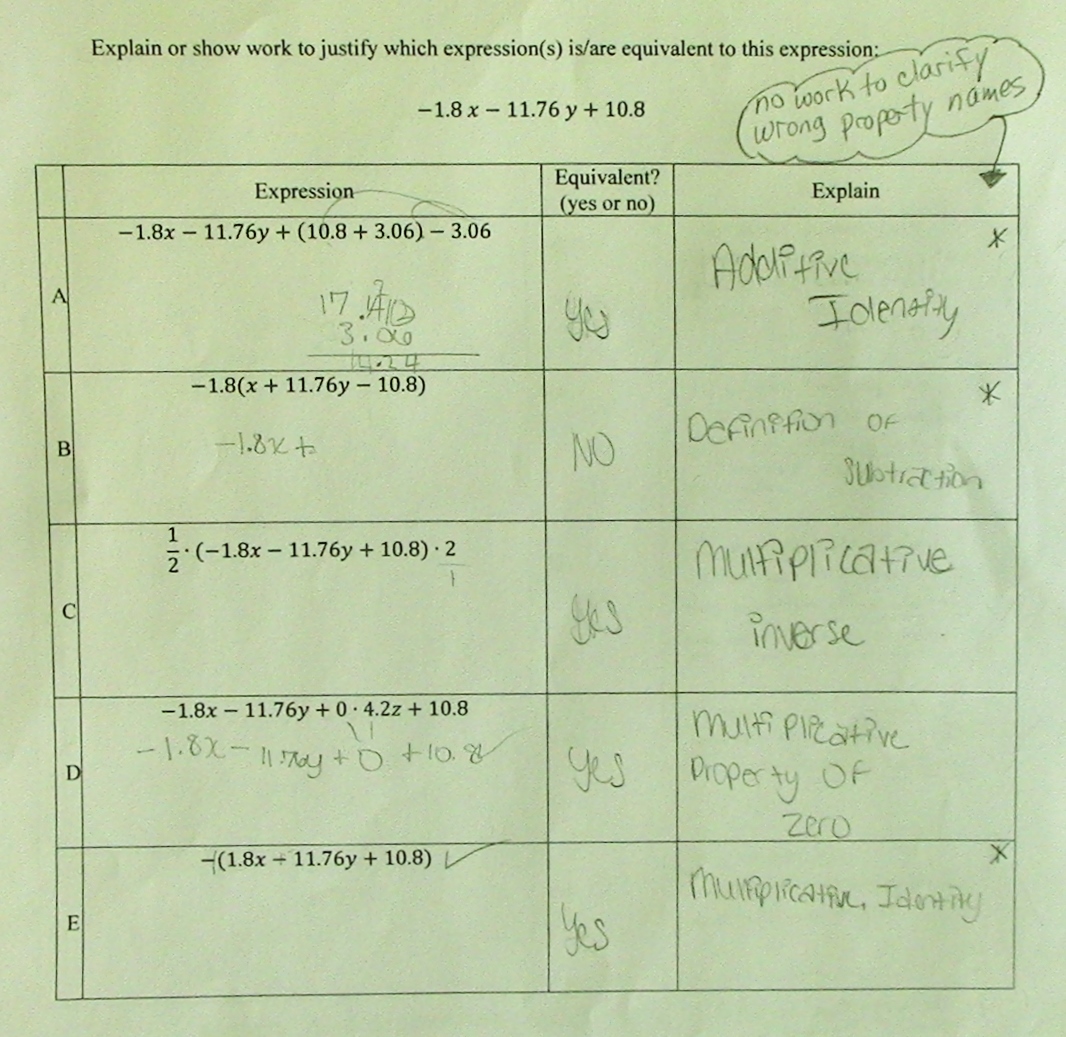 Explain or show work to justify which expression(s) is/are equivalent to this expression:
no work to clarify
wrong property names
−1.8 x − 11.76 y + 10.8
Expression
Equivalent?
(yes or no)
Explain
A
−1.8x − 11.76y + (10.8 + 3.06) − 3.06
17.
3.06
14.24
Yes
Additive
Identity
*
B
−1.8(x + 11.76y − 10.8)
−1.8x +
NO
Definition OF
Subtraction
*
C
1/2 · (−1.8x − 11.76y + 10.8) · 2
1
Yes
Multiplicative
inverse
D
−1.8x − 11.76y + 0 · 4.2z + 10.8
−1.8x − 11.76y + 0 + 10.8 ✓
Yes
Multiplicative
Property OF
Zero
E
−(1.8x + 11.76y + 10.8) ✓
Yes
Multiplicative Identity
*